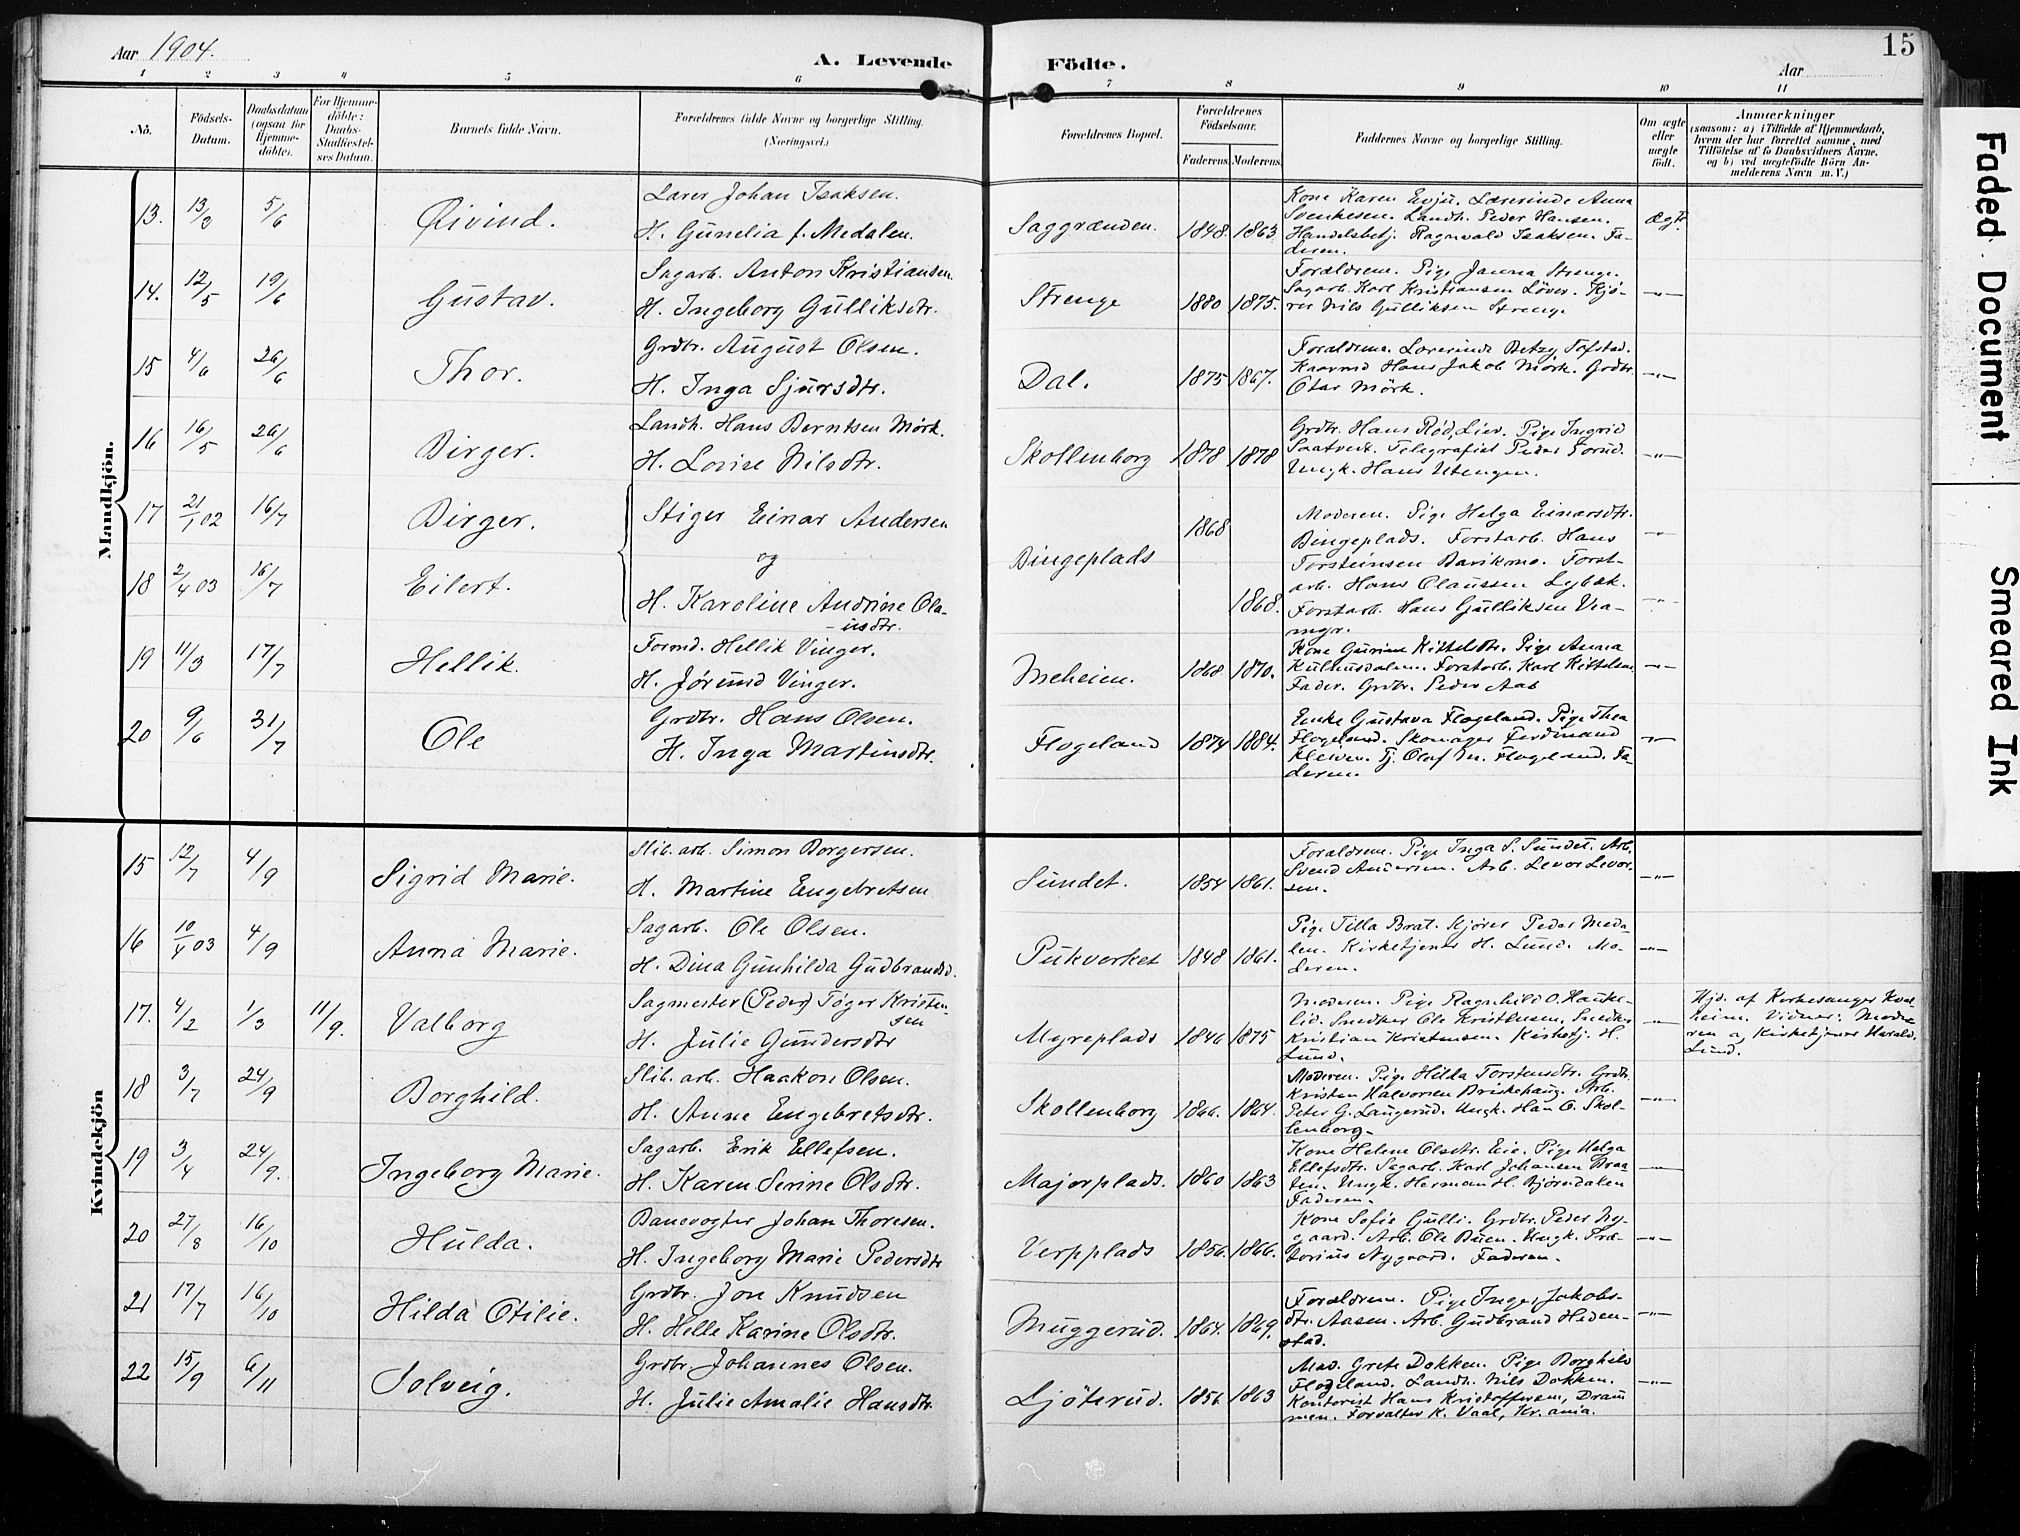 Aar 1904.
A. Levende Födte.
Aar
15
1 2 3 4 5 6 7 8 9 10 11
No.
Födsels-
Datum.
Daabsdatum
(ogsaa for
Hjemme-
döbte).
For Hjemme-
döbte:
Daabs-
Stadfæstel-
ses Datum.
Barnets fulde Navn.
Forældrenes fulde Navne og borgerlige Stilling.
(Næringsvei.)
Forældrenes Bopæl.
Forældrenes
Födselsaar.
Faderens. Moderens.
Faddernes Navne og borgerlige Stilling.
Om ægte
eller
uægte
födt.
Anmærkninger
(saasom: a) i Tilfælde af Hjemmedaab,
hvem der har forrettet samme, med
Tilföielse af to Daabsvidners Navne,
og b) ved uægtefödte Börn An-
melderens Navn m. V.)
Mandkjön.
13. 13/3 5/6 Øivind.
Lærer Johan Isaksen.
H. Gunelia f. Medalen.
Saggrænden. 1848. 1863.
Kone Karen Evju. Lærerinde Anna
Svenkesen. Landh. Peder Hansen.
Handelsbetj. Ragnvald Isaksen. Fa-
deren.
Ægte
14. 12/5 19/6 Gustav.
Sagarb. Anton Kristiansen.
H. Ingeborg Gulliksdtr.
Strenge 1880 1875.
Forældrene. Pige Janna Strenge.
Sagarb. Karl Kristiansen Löver. Kjö-
rer Nils Gulliksen Strenge
—"—
15 4/6 26/6 Thor.
Grdbr. August Olsen.
H. Inga Sjursdtr.
Dal. 1875 1867.
Forældrene. Lærerinde Betzy Tofstad.
Kaarmd Hans Jakob Mörk. Grdbr.
Otar Mörk.
—"—
16 16/5 26/6 Birger.
Landh. Hans Berntsen Mörk.
H. Lovise Nilsdtr.
Skollenborg 1878 1878
Grdbr. Hans Röd, Lier. Pige Ingrid
Saatvedt. Telegrafist Peder Gorud.
Ungk. Hans Utengen.
—"—
17 21/1 02 16/7 Birger.
18 2/4 03 16/7 Eilert.
Stiger Einar Andersen
og
H. Karoline Andrine Ola-
usdtr.
Bingeplads 1868 1868.
Moderen. Pige Helga Einarsdtr.
Bingeplads. Forstarb. Hans
Forst-
arb. Hans Olaussen Lybæk.
Forstarb. Hans Gulliksen
—"—
—"—
19 11/3 17/7 Hellik.
Formd. Hellik Vinger.
H. Jörund Vinger.
Meheien. 1868 1870.
Kone Gurine Kittelsdtr. Pige Anna
Forstarb. Karl Kittelsen
Fader. Grdbr. Peder Aas
—"—
20 9/6 31/7 Ole
Grdbr. Hans Olsen.
H. Inga Martinsdtr.
Flogeland 1874 1884.
Enke Gustava Flogeland. Pige Thea
Flogeland. Skomager Ferdinand
Kleiven. Tj. Olaf M. Flogeland. Fa-
deren.
—"—
Kvindekjön
15 12/7 4/9 Sigrid Marie.
Slib. arb. Simon Borgersen.
H. Martine Engebretsen
Sundet. 1854 1861.
Forældrene. Pige Inga S. Sundet. Arb.
Svend Andersen. Arb. Levor Levor-
sen.
—"—
16 10/4 03 4/9 Anna Marie.
Sagarb. Ole Olsen.
H. Dina Gunhilda Gudbrandsd.
Pukverket 1848 1861.
Pige Tilla Brat. Kjörer Peder Meda-
len. Kirketjener H. Lund. Mo-
deren.
—"—
17. 4/2 1/3 11/9. Valborg
Sagmester (Peder) Töger Kristen-
sen
H. Julie Gundersdtr
Myreplads 1846 1875
Moderen. Pige Ragnhild O. Hauke-
lid. Snedker Ole Kristensen. Snedker
Kristian Kristensen. Kirketj. H.
Lund.
—"—
Hjd. af Kirkesanger Kval-
heim. Vidner: Mode-
ren og Kirketjener Harald
Lund.
18 3/7 24/9 Borghild.
Slib. arb. Haakon Olsen.
H. Anne Engebretsdtr.
Skollenborg 1866. 1864.
Moderen. Pige Hilda Torstensdtr. Grdbr.
Kristen Halvorsen Briskehaug. Arb.
Peter G. Laugerud. Ungk. Han O. Skol-
lenborg.
—"—
19 3/4 24/9. Ingeborg Marie.
Sagarb. Erik Ellefsen.
H. Karen Serine Olsdtr.
Majorplads. 1860 1863
Kone Helene Olsdtr. Eie. Pige Helga
Ellefsdtr. Sagarb. Karl Johansen Braa-
ten. Ungk. Herman H. Björndalen
Faderen.
—"—
20 27/8 16/10 Hulda.
Banevogter Johan Thoresen.
H. Ingeborg Marie Pedersdtr
Verpplads 1856. 1866.
Kone Sofie Gulli. Grdbr. Peder Ny-
gaard. Arb. Ole Buen. Ungk. Præ-
torius Nygaard. Faderen.
—"—
21 17/7 16/10 Hilda Otilie.
Grdbr. Jon Knudsen
H. Helle Karine Olsdtr.
Muggerud. 1864. 1869.
Forældrene. Pige Inger Jakobs-
dtr. Aasen. Arb. Gudbrand Heden-
stad.
—"—
22 15/9 6/11 Solveig.
Grdbr Johannes Olsen.
H. Julie Amalie Hansdtr.
Ljöterud. 1856 1863
Mad. Grete Dokken. Pige Borghild
Flogeland. Landh. Nils Dokken.
Kontorist Hans Kristoffersen, Dram-
men. Forvalter K. Vaal, Kr.ania.
—"—
Faded Document
Smeared Ink